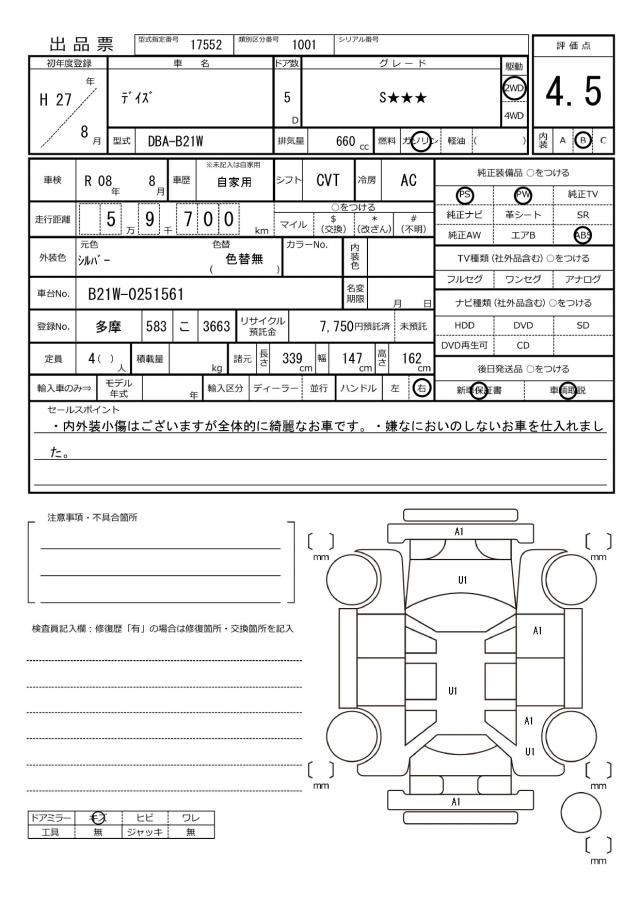 出品票 型式指定番号 17552 類別区分番号 1001 シリアル番号
評価点
4.5
内装 A B C
初年度登録 車名 ドア数 グレード 駆動
H 27 年 8 月
ﾃﾞｲｽﾞ
5 D
S★★★
2WD
4WD
型式 DBA-B21W 排気量 660 cc 燃料 ガソリン 軽油 ( )
車検 R 08 年 8 月 車歴 ※未記入は自家用 自家用 シフト CVT 冷房 AC
走行距離 5 9 7 0 0 万 千 km
○をつける
マイル $ (交換) * (改ざん) # (不明)
外装色 元色 ｼﾙﾊﾞｰ 色替 ( 色替無 ) カラーNo. 内装色
車台No. B21W-0251561 名変期限 月 日
登録No. 多摩 583 こ 3663 リサイクル預託金 7,750円預託済 未預託
定員 4( ) 人 積載量 kg 諸元 長さ 339 cm 幅 147 cm 高さ 162 cm
輸入車のみ⇒ モデル年式 年 輸入区分 ディーラー 並行 ハンドル 左 右
純正装備品 ○をつける
PS PW 純正TV
純正ナビ 革シート SR
純正AW エアB ABS
TV種類(社外品含む)○をつける
フルセグ ワンセグ アナログ
ナビ種類(社外品含む)○をつける
HDD DVD SD
DVD再生可 CD
後日発送品 ○をつける
新車保証書 車輌取説
セールスポイント
・内外装小傷はございますが全体的に綺麗なお車です。・嫌なにおいのしないお車を仕入れまし
た。
注意事項・不具合箇所
検査員記入欄：修復歴「有」の場合は修復箇所・交換箇所を記入
ドアミラー キズ ヒビ ワレ
工具 無 ジャッキ 無
A1
[ ] mm
[ ] mm
U1
A1
U1
A1
U1
[ ] mm
[ ] mm
A1
[ ] mm